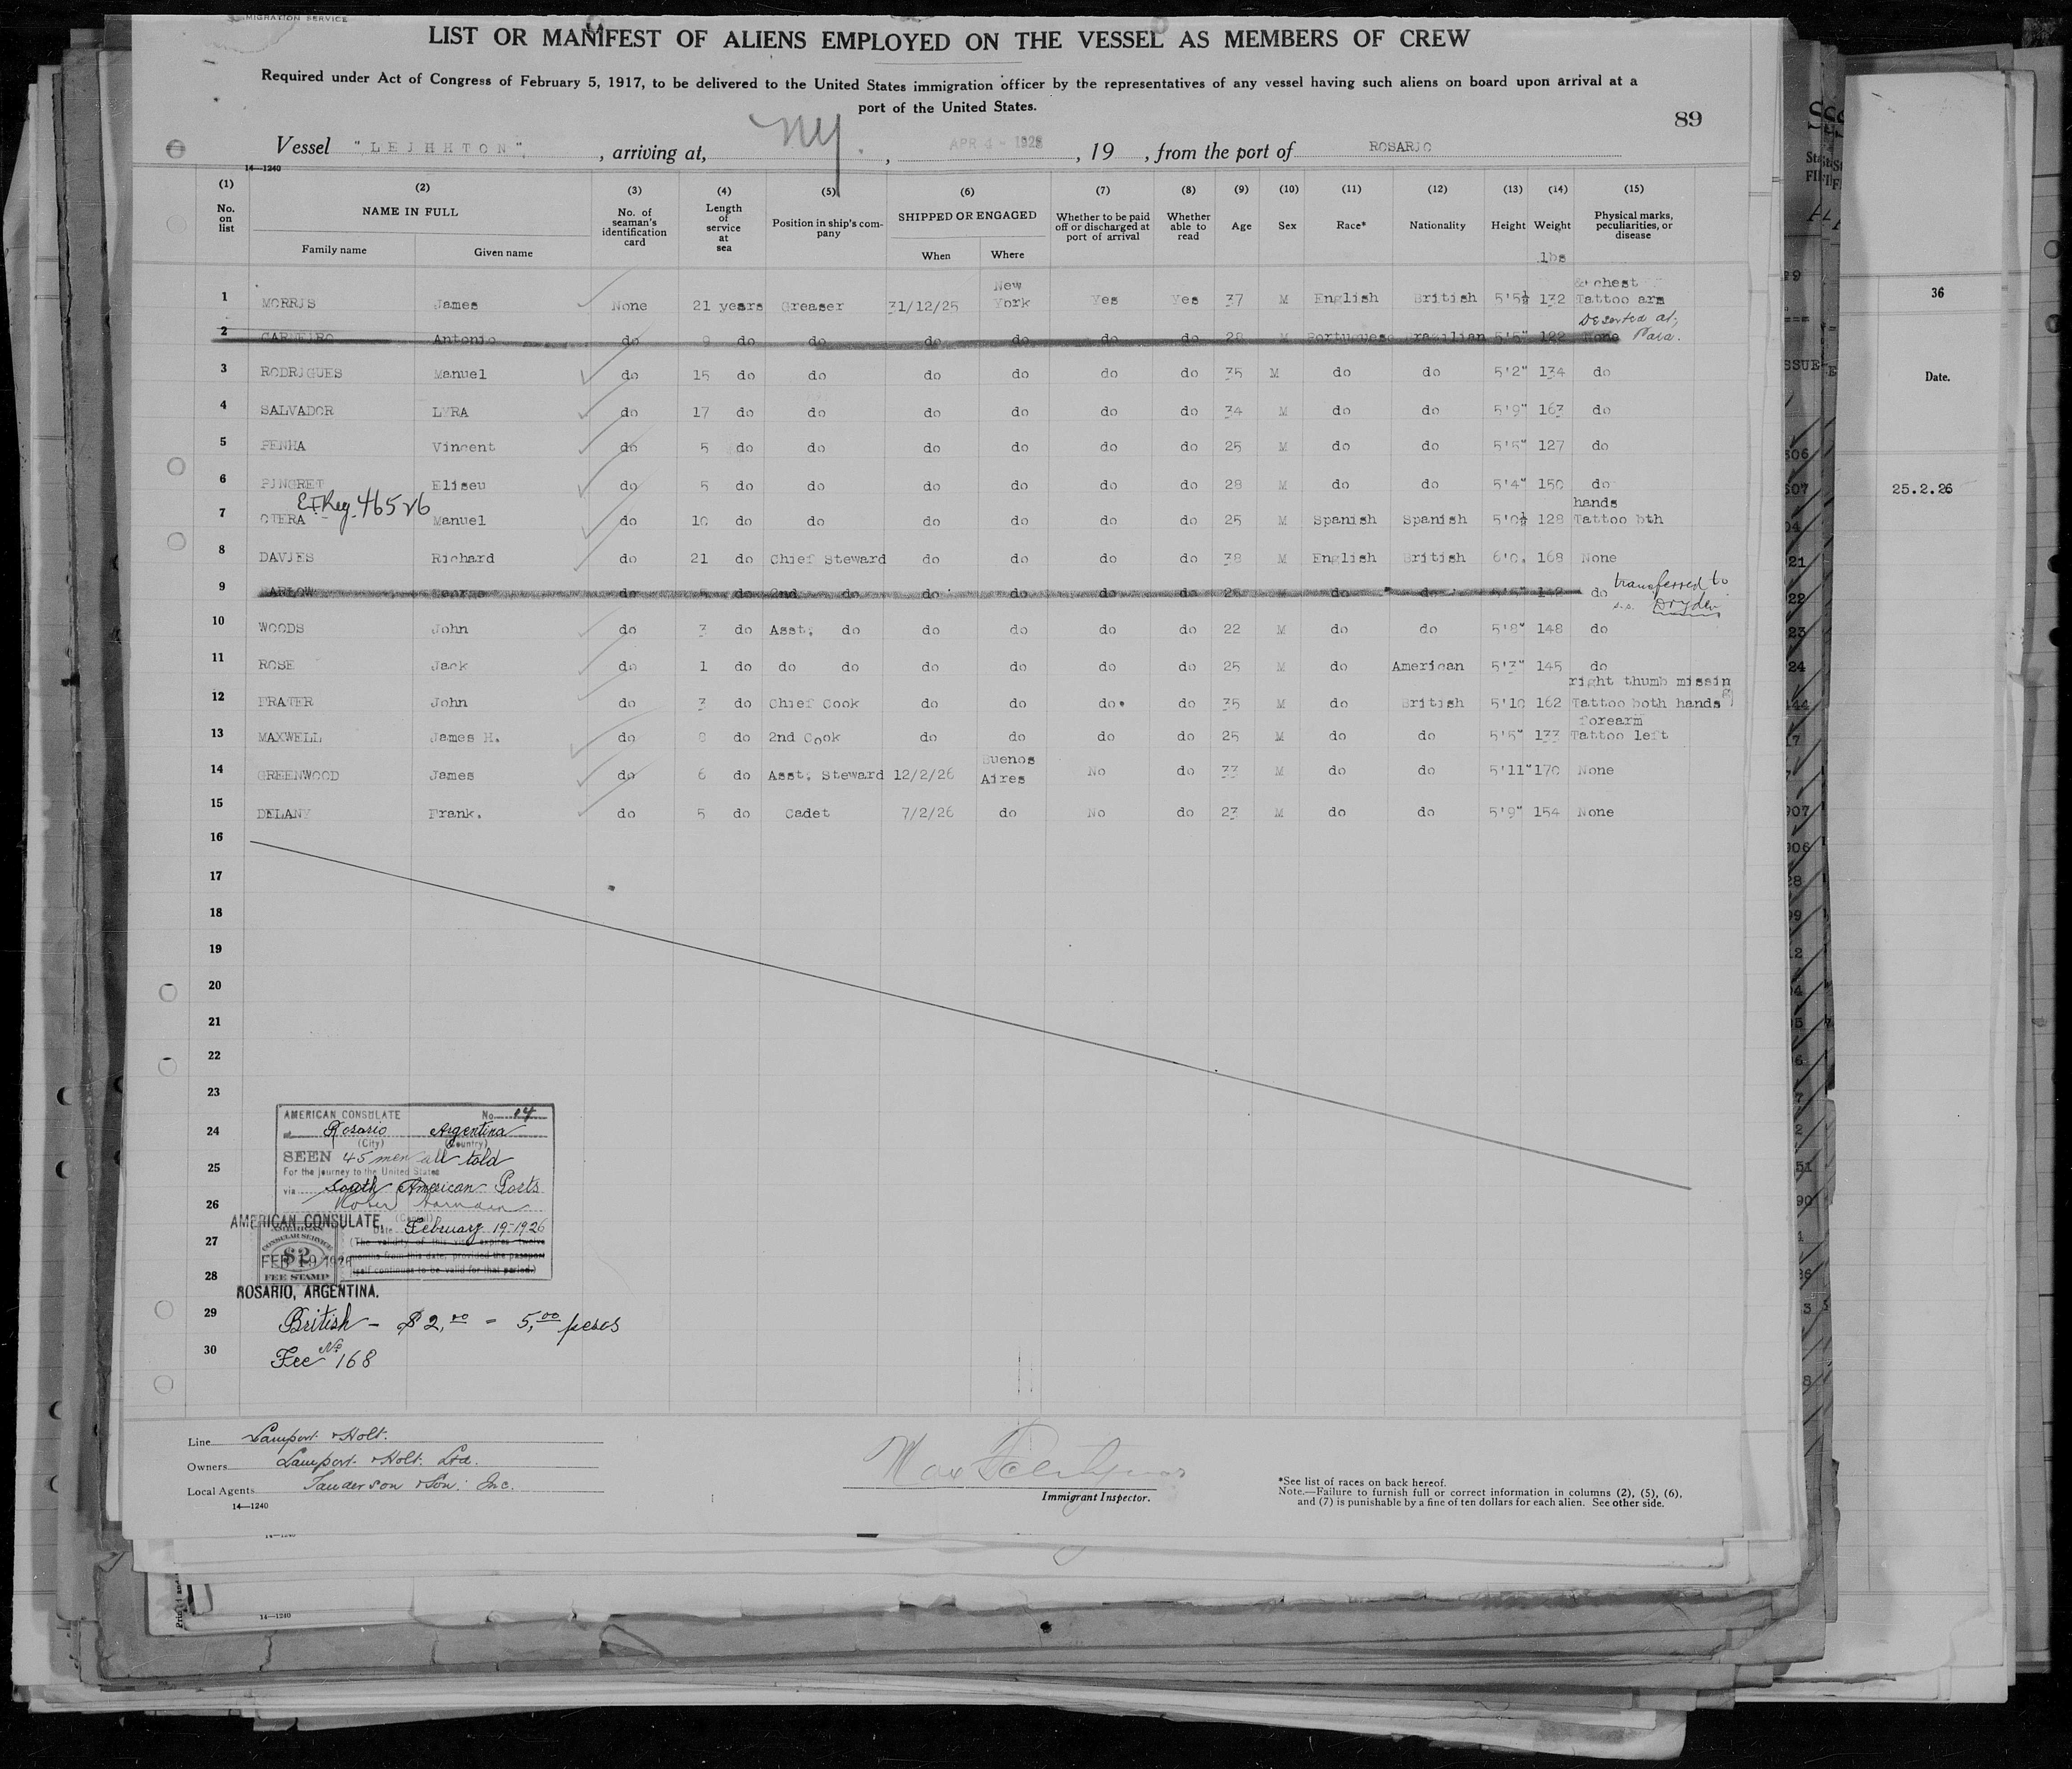 MIGRATION SERVICE
LIST OR MANIFEST OF ALIENS EMPLOYED ON THE VESSEL AS MEMBERS OF CREW
Required under Act of Congress of February 5, 1917, to be delivered to the United States immigration officer by the representatives of any vessel having such aliens on board upon arrival at a
port of the United States.
89
Vessel "LEJHHTON", arriving at, NY., APR 4 - 1926, 19 , from the port of ROSARJO
14—1240
(1) (2) (3) (4) (5) (6) (7) (8) (9) (10) (11) (12) (13) (14) (15)
No. on list NAME IN FULL No. of seaman's identification card Length of service at sea Position in ship's company SHIPPED OR ENGAGED Whether to be paid off or discharged at port of arrival Whether able to read Age Sex Race* Nationality Height Weight Physical marks, peculiarities, or disease
Family name Given name When Where lbs
1 MORRJS James None 21 years Greaser 31/12/25 New York Yes Yes 37 M English British 5'5½ 132 Tattoo arm & chest
2 CARNEIRO Antonio do 9 do do do do do do 28 M Portuguese Brazilian 5'5" 122 None Deserted at, Para.
3 RODRJGUES Manuel do 15 do do do do do do 35 M do do 5'2" 134 do
4 SALVADOR LYRA do 17 do do do do do do 34 M do do 5'9" 163 do
5 PENHA Vincent do 5 do do do do do do 25 M do do 5'5" 127 do
6 PJNGRET Eliseu do 5 do do do do do do 28 M do do 5'4" 150 do
46526
7 OTERA Manuel do 10 do do do do do do 25 M Spanish Spanish 5'0½ 128 Tattoo bth hands
8 DAVJES Richard do 21 do Chief Steward do do do do 38 M English British 6'0. 168 None
9 BARLOW George do 5 do 2nd do do do do do 26 M do do 5'5" 142 do transferred to s.s. Dryden
10 WOODS John do 3 do Asst, do do do do do 22 M do do 5'8" 148 do
11 ROSE Jack do 1 do do do do do do do 25 M do American 5'3" 145 do
12 FRATER John do 3 do Chief Cook do do do do 35 M do British 5'10 162 Tattoo both hands right thumb missing
13 MAXWELL James H. do 8 do 2nd Cook do do do do 25 M do do 5'5" 133 Tattoo left forearm
14 GREENWOOD James do 6 do Asst, Steward 12/2/26 Buenos Aires No do 33 M do do 5'11" 170 None
15 DELANY Frank. do 5 do Cadet 7/2/26 do No do 23 M do do 5'9" 154 None
16
17
18
19
20
21
22
23
24
25
26
27
28
29
30
AMERICAN CONSULATE No. 14
at Rosario Argentina
(City) (Country)
SEEN 45 men all told
For the journey to the United States
via South American Ports
(Consul)
Date February 19-1926
(The validity of this visa expires twelve
months from this date, provided the passport
itself continues to be valid for that period.)
AMERICAN CONSULATE,
FEB 19 1926
ROSARIO, ARGENTINA.
AMERICAN
CONSULAR SERVICE
$2
FEE STAMP
British - $2.00 = 5,00 pesos
Fee No 168
Line Lamport & Holt.
Owners Lamport & Holt. Ltd.
Local Agents Sanderson & Son. Inc.
14—1240
Immigrant Inspector.
*See list of races on back hereof.
Note.—Failure to furnish full or correct information in columns (2), (5), (6),
and (7) is punishable by a fine of ten dollars for each alien. See other side.
14—1240
36
Date.
25.2.26